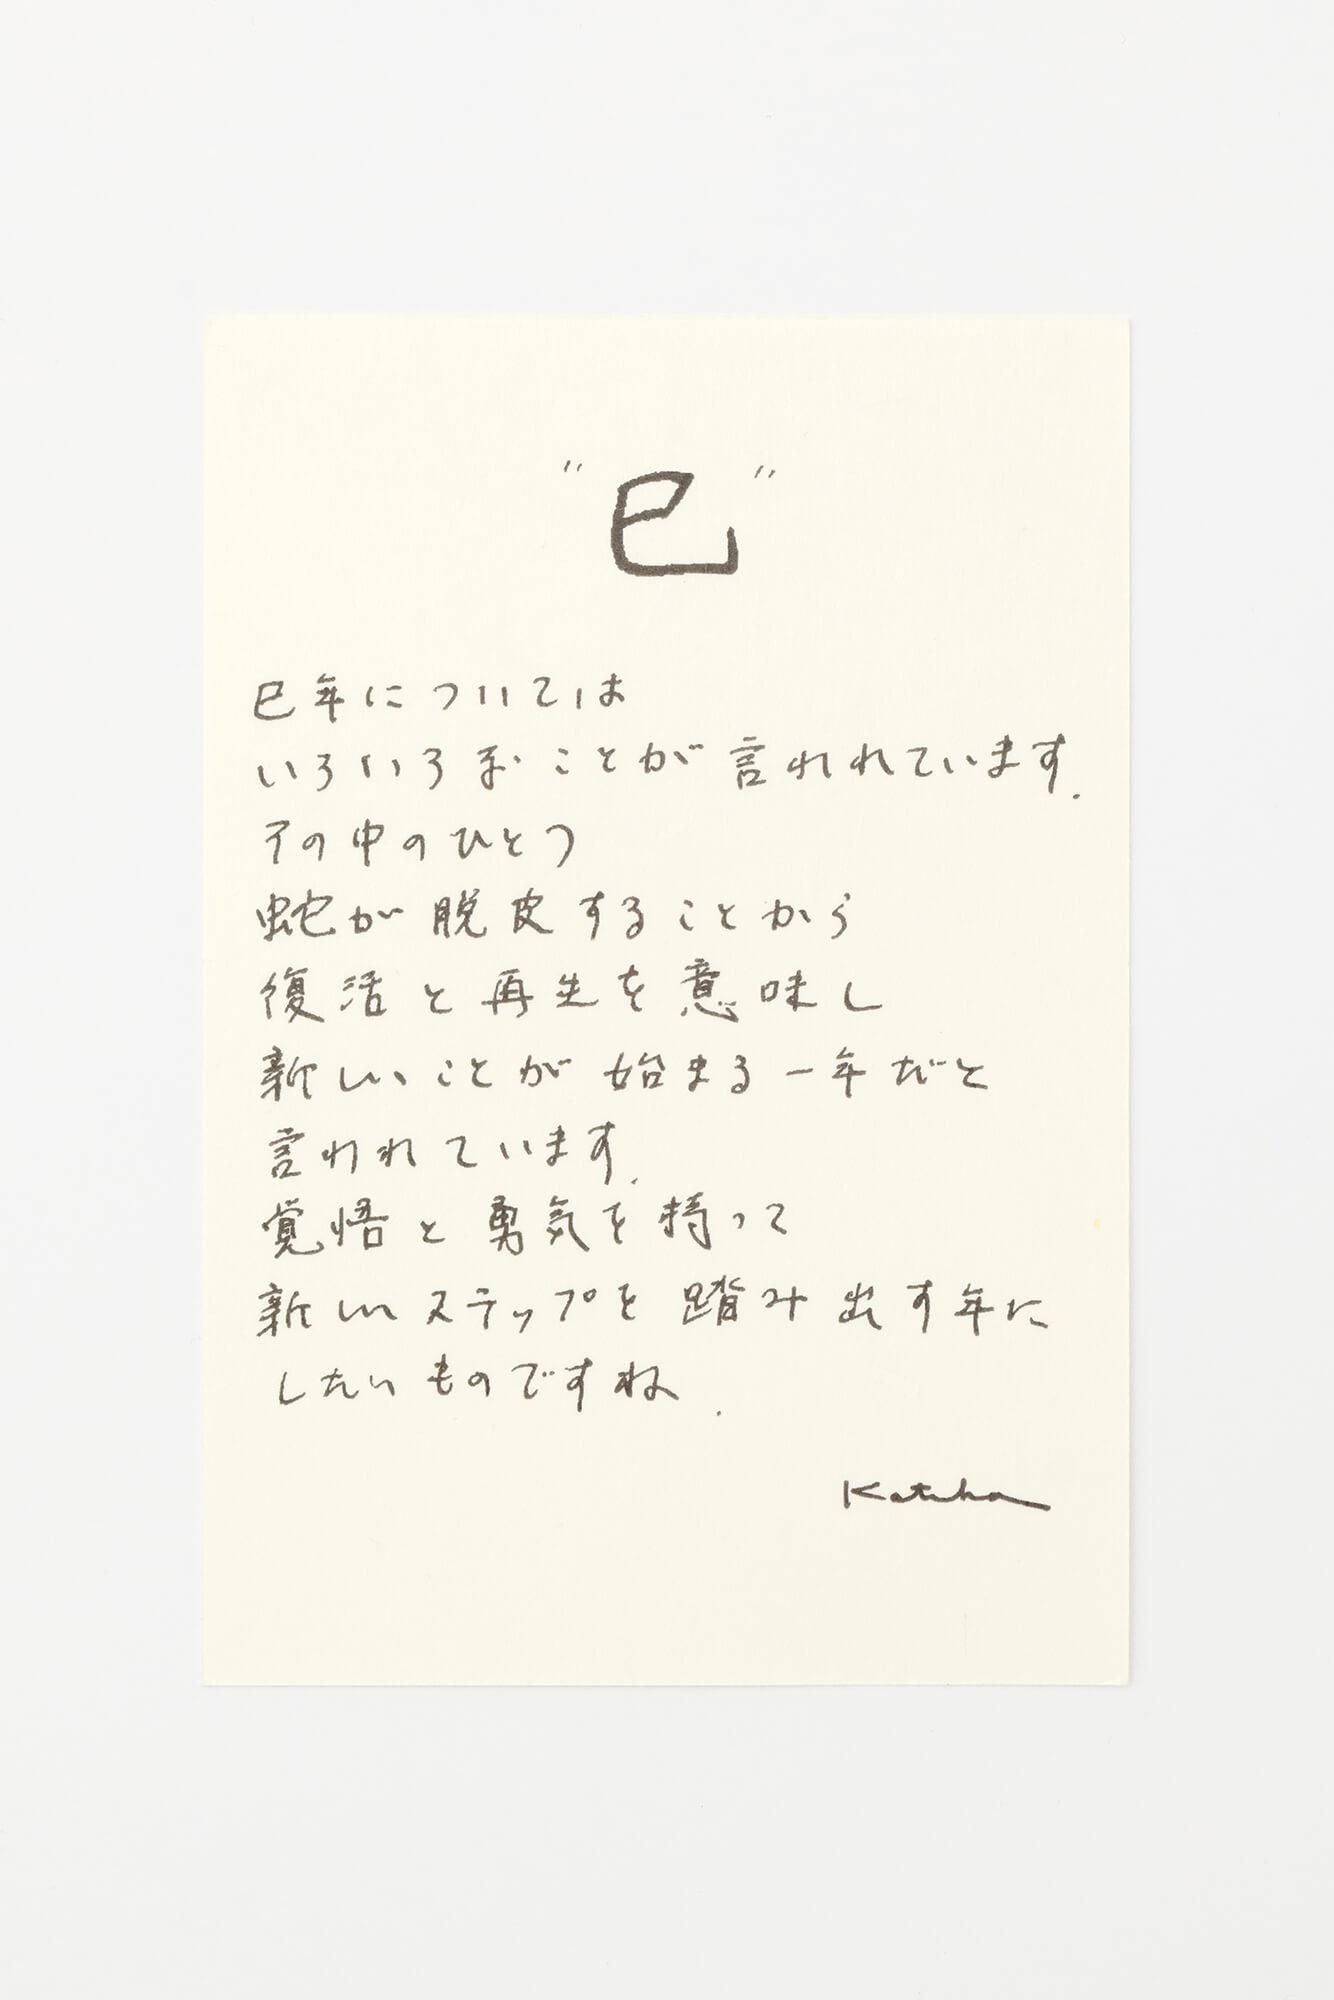 "巳"
巳年については
いろいろなことが言われています.
その中のひとつ
蛇が脱皮することから
復活と再生を意味し
新しいことが始まる一年だと
言われています.
覚悟と勇気を持って
新しいステップを踏み出す年に
したいものですね.